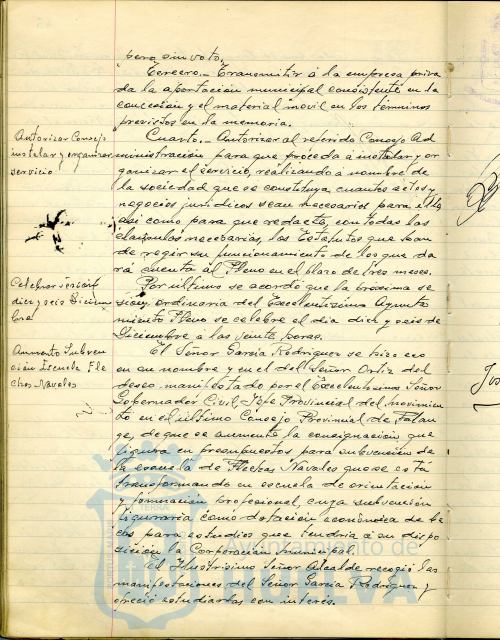 pero sin voto.
Tercero.- Transmitir á la empresa priva
da la aportación municipal consistente en la
concesión y el material movil en los términos
previstos en la memoria.
Autorizar Consejo
instalar y organizar
servicio
Cuarto.- Autorizar al referido Consejo Ad
ministración para que proceda a instalar y or
ganizar el servicio, realizando a nombre de
la sociedad que se constituya, cuantos actos y
negocios jurídicos sean necesarios para ello
así como para que redacte, con todas las
clausulas necesarias, los Estatutos que han
de regir su funcionamiento de los que da
rá cuenta al Pleno en el plazo de tres meses.
Celebrar sesión
diez y seis Diciem
bre
Por último se acordó que la próxima se
sión, ordinaria del Excelentísimo Ayunta
miento Pleno se celebre el dia diez y seis de
Diciembre a las veinte horas.
Aumento Subven
ción Escuela Fle
chas Navales
El Señor Garcia Rodriguez se hizo eco
en su nombre y en el del Señor Ortiz del
deseo manifestado por el Excelentísimo Señor
Gobernador Civil, Jefe Provincial del movimien
to en el último Consejo Provincial de Falan
ge, de que se aumente la consignación que
figura en presupuestos para subvención de
la escuela de Flechas Navales que se está
transformando en escuela de orientación
y formación profesional, cuya subvención
figuraria como dotación económica de be
cas para estudios que tendria a su dispo
sición la Corporación municipal.
El Ilustrísimo Señor Alcalde recogió las
manifestaciones del Señor Garcia Rodriguez y
ofreció estudiarlas con interés.
Ayuntamiento de
HUELVA